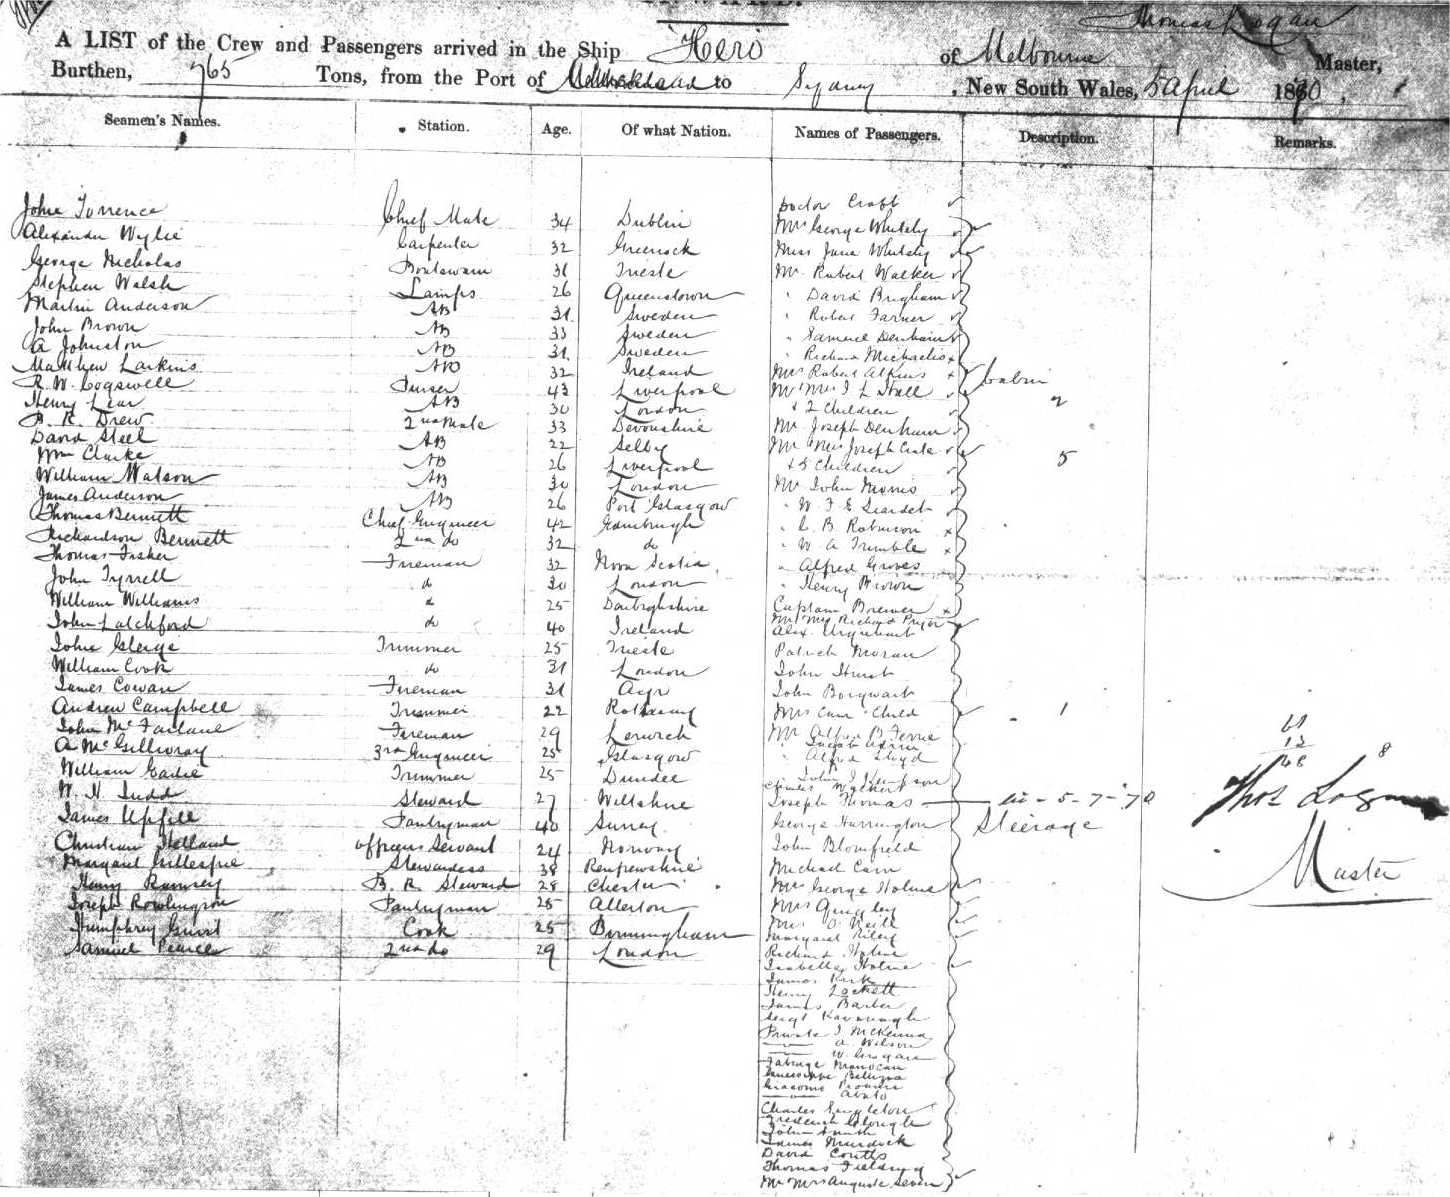 INWARD.
Thomas Logan
A LIST of the Crew and Passengers arrived in the Ship Hero of Melbourne Master,
Burthen, 765 Tons, from the Port of to Sydney , New South Wales, 5 April 1870 ,
Seamen's Names. Station. Age. Of what Nation. Names of Passengers. Description. Remarks.
John Torrence Chief Mate 34 Dublin Doctor Craft
Alexander Wylie Carpenter 32 Greenock Mrs George Whitely
George Nicholas Boatswain 31 Trieste Miss Jane Whitely
Stephen Walsh Lamps 26 Queenstown Mr Robert Walker
Martin Anderson AB 31 Sweden " David Brigham
John Brown AB 33 Sweden " Robert Farmer
A Johnston AB 31 Sweden " Samuel Denham
Matthew Larkins AB 32 Ireland " Richard Michaelis
R. W. Cogswell Purser 43 Liverpool Mrs Robert Atkins
Henry Lear AB 30 London Mr Mrs J L Hall Cabin
B. R. Drew 2nd Mate 33 Devonshire & 2 Children 2
David Steel AB 22 Selby Mr Joseph Denham
Wm Clarke AB 26 Liverpool Mr Mrs Joseph
William Watson AB 30 London & 5 Children 5
James Anderson AB 26 Port Glasgow Mr John Morris
Thomas Bennett Chief Engineer 42 Edinburgh " W F E
Richardson Bennett 2nd do 32 do " B Robinson
Thomas Fisher Fireman 32 Nova Scotia " W A Trimble
John Tyrrell do 30 London " Alfred Groves
William Williams do 25 Denbighshire " Henry Brown
John Latchford do 40 Ireland Captain Brewer
John Trimmer 25 Trieste Mr Mrs Richard Pryor
William Cook do 31 London Alex. Urquhart
James Cowan Fireman 31 Ayr Patrick Moran
Andrew Campbell Trimmer 22 Rothesay John Hurst
John McFarlane Fireman 29 Lerwick John
A McGillivray 3rd Engineer 25 Glasgow Mrs Child 1
William Eadie Trimmer 25 Dundee Mr Alfred B
W. N. Judd Steward 27 Wiltshire " Alfred Lloyd
James Upfill Pantryman 40 Surrey " John J Kempson
Christian Holland officers Servant 24 Norway Charles
Margaret Gillespie Stewardess 38 Renfrewshire Joseph Thomas 5-7-70
Henry Ramsey B. R. Steward 28 Chester George Harrington Steerage
Joseph Rowlingson Pantryman 25 Allerton John Blomfield
Humphrey Cook 25 Birmingham Michael Cain
Samuel Pearce 2nd do 29 London Mrs George Holme
Mrs Quigley
Mrs O'Neill
Margaret Riley
Richard Holme
Isabella Holme
James Kirk
Henry Lockett
James Barber
Sergt Kavanagh
Private J McKenna
A. Wilson
W. Grogan
Charles Singleton
Frederick Clough
John Smith
James Murdock
David Coutts
Thomas
Mr Mrs Auguste
61
13
68
8
Thos Logan
Master